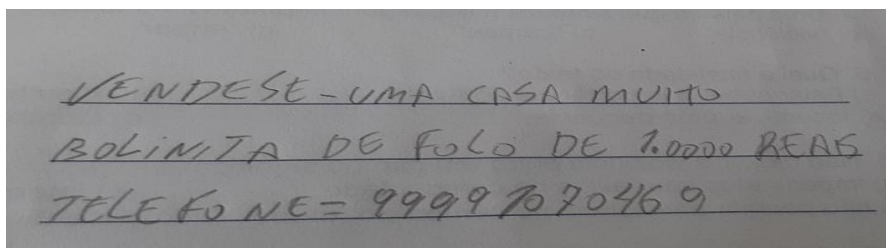 VENDESE - UMA CASA MUITO
BOLINITA DE FOLO DE 1.0000 REAIS
TELEFONE = 99997070469